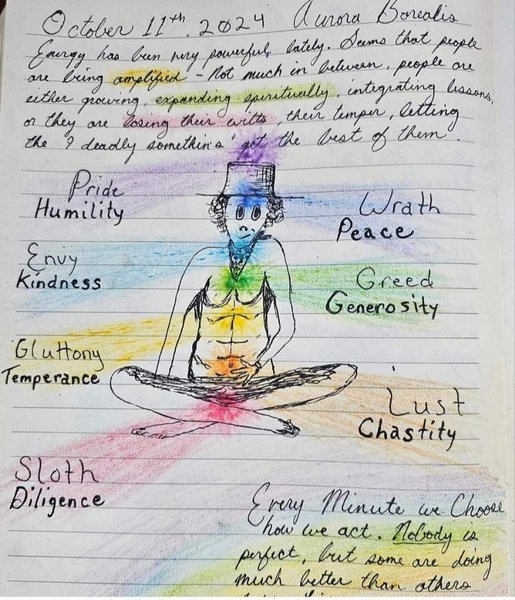 October 11th, 2024 Aurora Borealis
Energy has been very powerful lately. Seems that people
are being amplified - Not much in between, people are
either growing, expanding spiritually, integrating lessons,
or they are losing their wits, their temper, letting
the 7 deadly somethin's get the best of them.
Pride
Humility
Wrath
Peace
Envy
Kindness
Greed
Generosity
Gluttony
Temperance
Lust
Chastity
Sloth
Diligence
Every Minute we Choose
how we act. Nobody is
perfect, but some are doing
much better than others